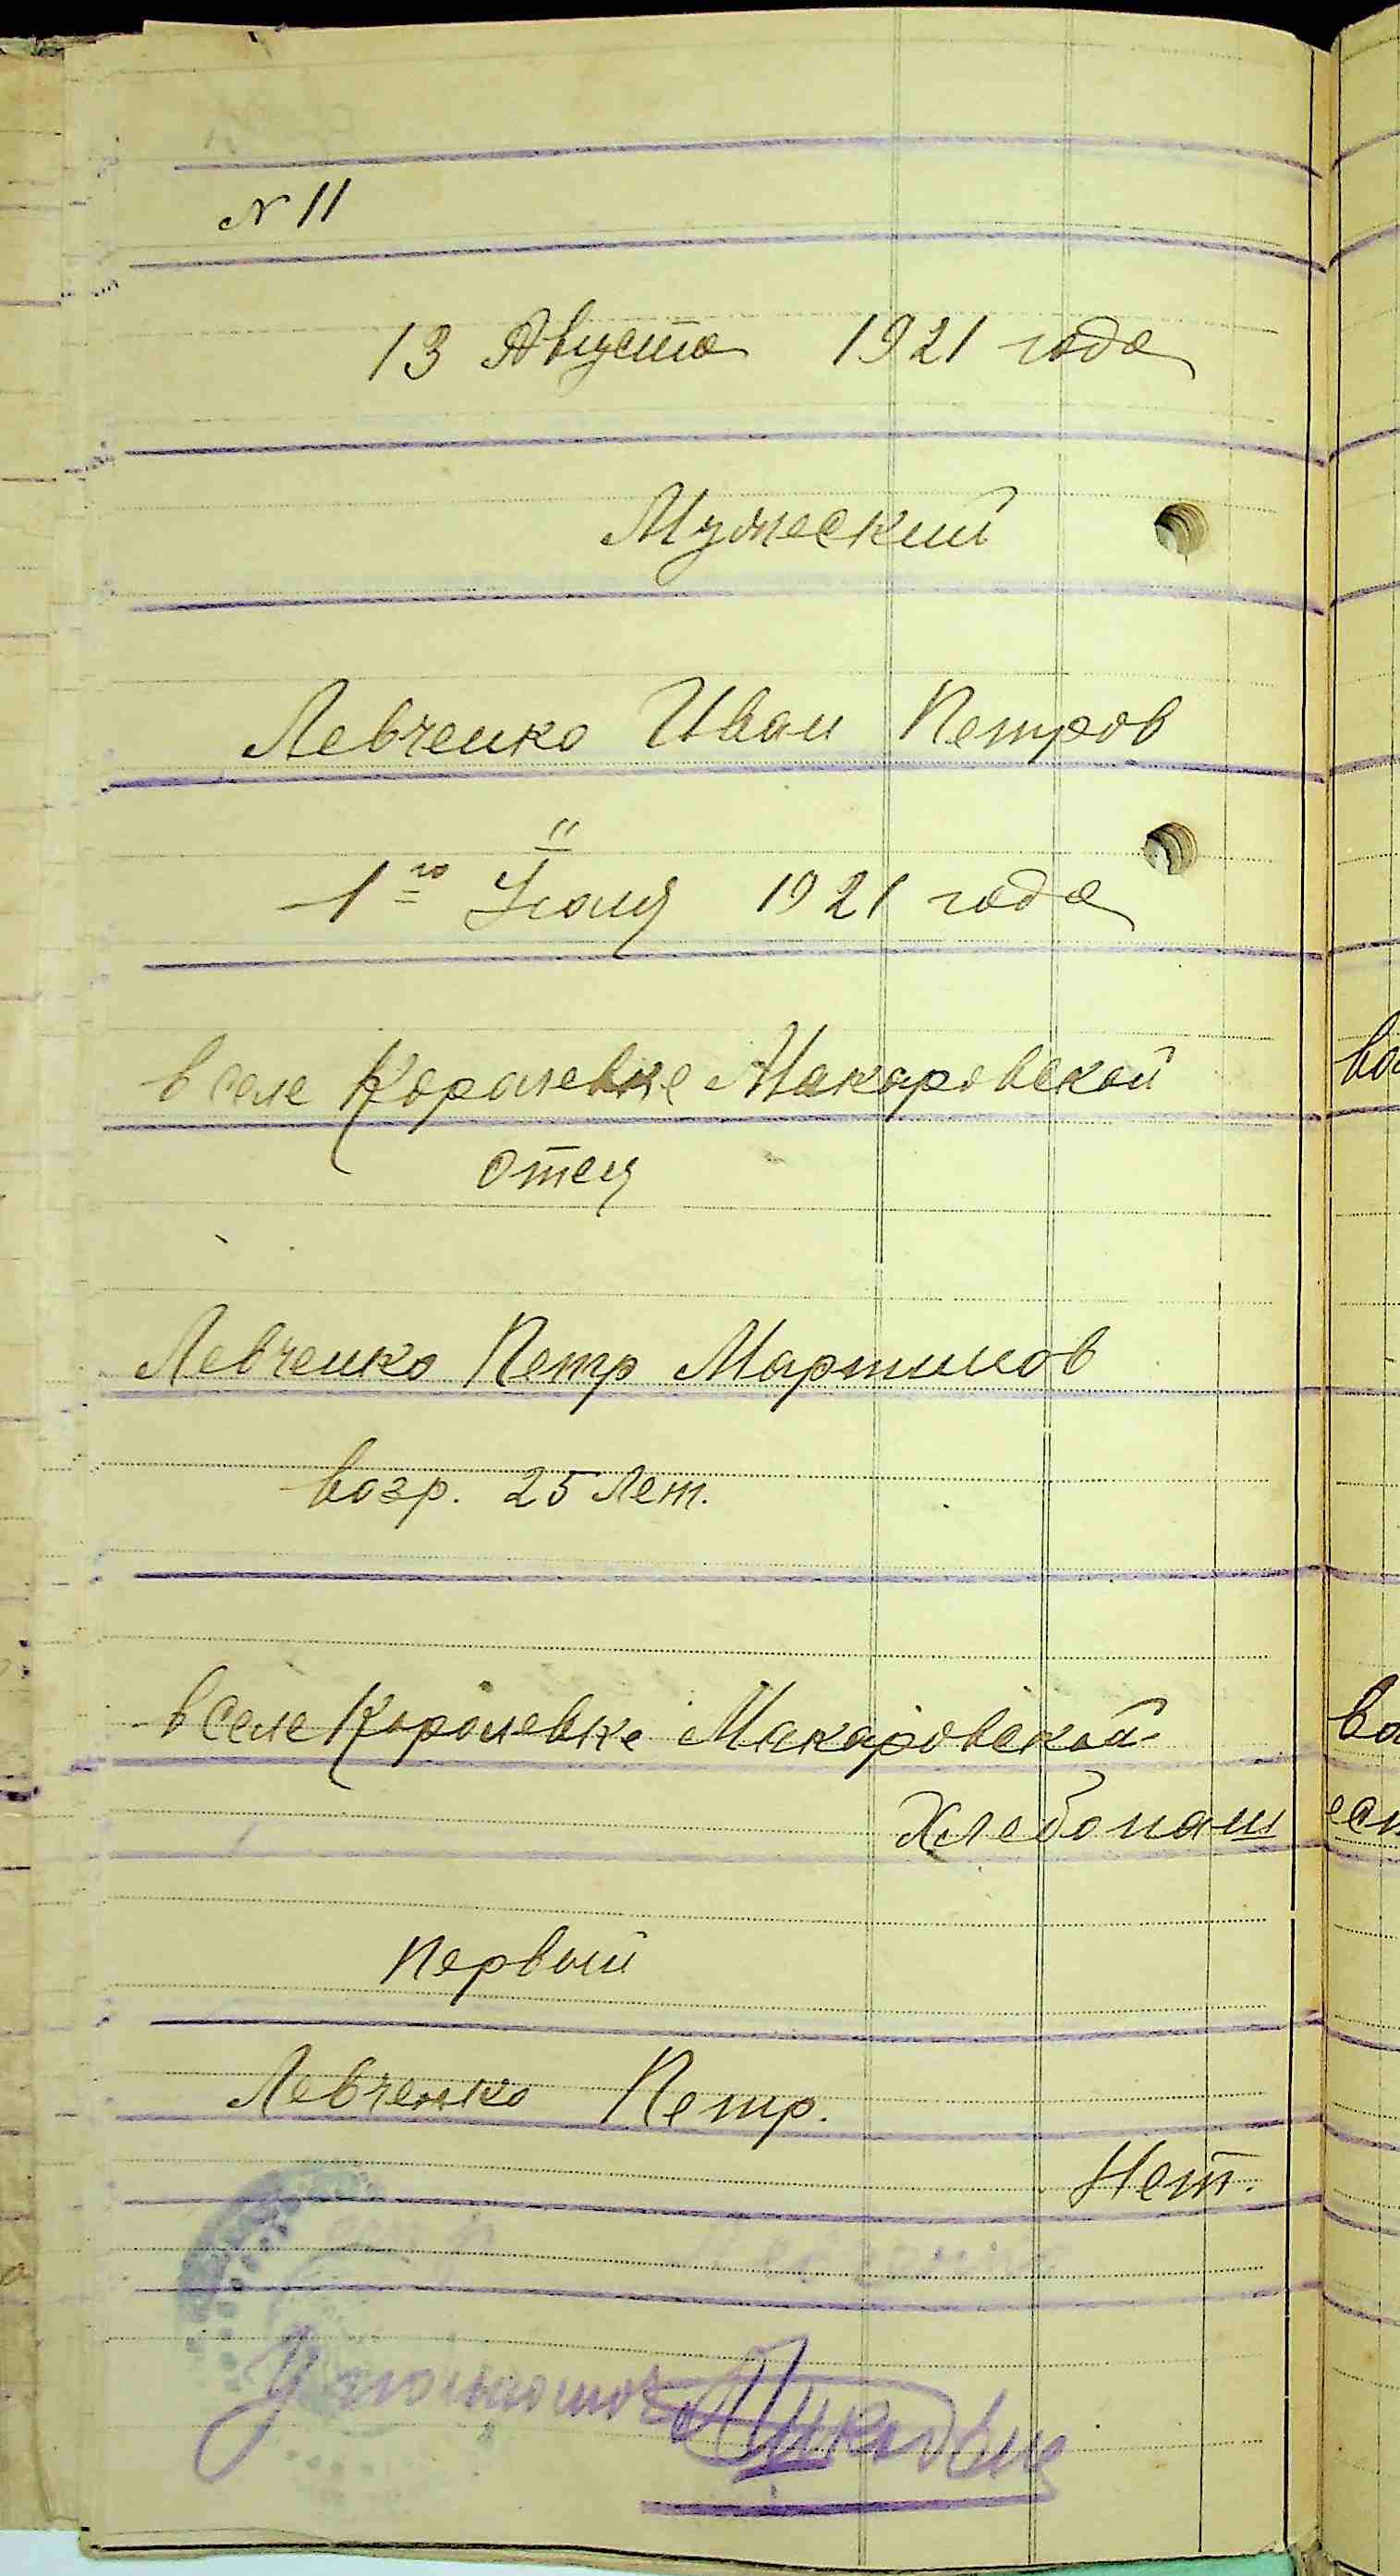 N 11
13 Августа 1921 года
Мужеский
Левченко Иван Петров
"
1го Июля 1921 года
в селе Королевке Макаровской
отец
Левченко Петр Мартинов
возр. 25 лет.
в селе Королевке Макаровской
Хлебопаш
Первый
Левченко Петр.
Нет.